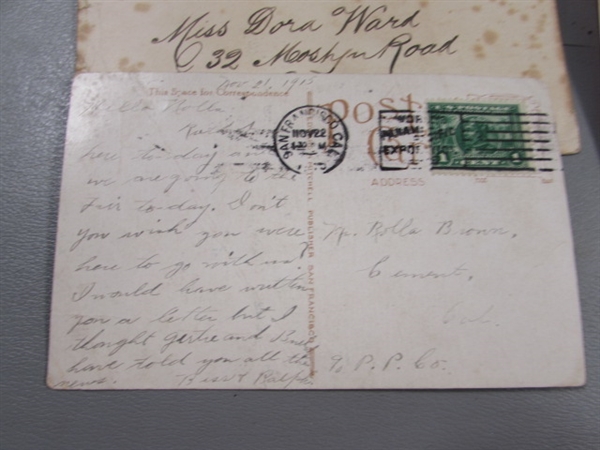 Miss Dora Ward
32 Road
Nov 21, 1915
This Space for Correspondence
Post
Hello Rolla
here to-day and
we are going to the
Fair to-day. I don't
you wish you were
here to go with us?
I would have written
you a letter but I
thought Gertie and
have told you all the
news. Ralph
SAN FRANCISCO, CAL.
NOV 22
ADDRESS
PUBLISHER, SAN FRANCISCO
Mr. Rolla Brown,
Cement,
Cal.
% P. P. Co.